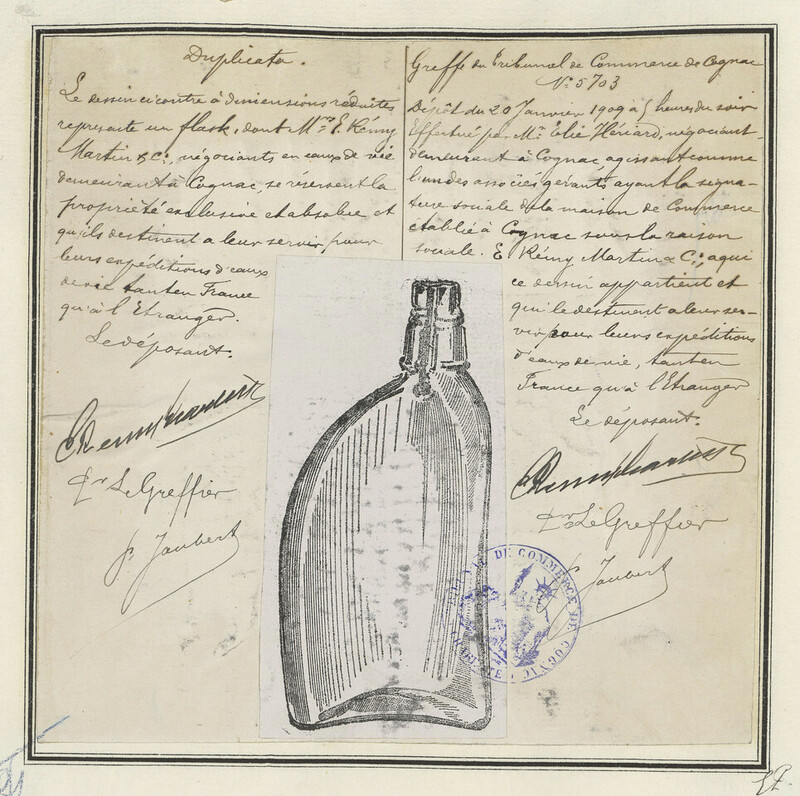 Duplicata.
Le dessin ci contre à dimensions réduites
représente un flask, dont Mrs E. Rémy
Martin & Cie, négociants en eaux de vie
demeurant à Cognac, se réservent la
propriété exclusive et absolue et
qu'ils destinent a leur servir pour
leurs expéditions d'eaux
de vie tant en France
qu'à l'Etranger.
Le déposant.
E Remy Martin & Cie
Pr Le Greffier
P. Jaubert
Greffe du Tribunal de Commerce de Cognac
No 5703
Dépôt du 20 Janvier 1909 à 5 heures du soir
Effectué par Mr Elie Hériard, négociant
demeurant à Cognac agissant comme
l'un des associés gérants ayant la signa-
ture sociale de la maison de Commerce
établie à Cognac sous la raison
sociale. E Rémy Martin & Cie, a qui
ce dessin appartient et
qui le destinent a leur ser-
vir pour leurs expéditions
d'eaux de vie, tant en
France qu'à l'Etranger
Le déposant.
E Remy Martin & Cie
Pr Le Greffier
P. Jaubert
DE COMMERCE DE COGNAC